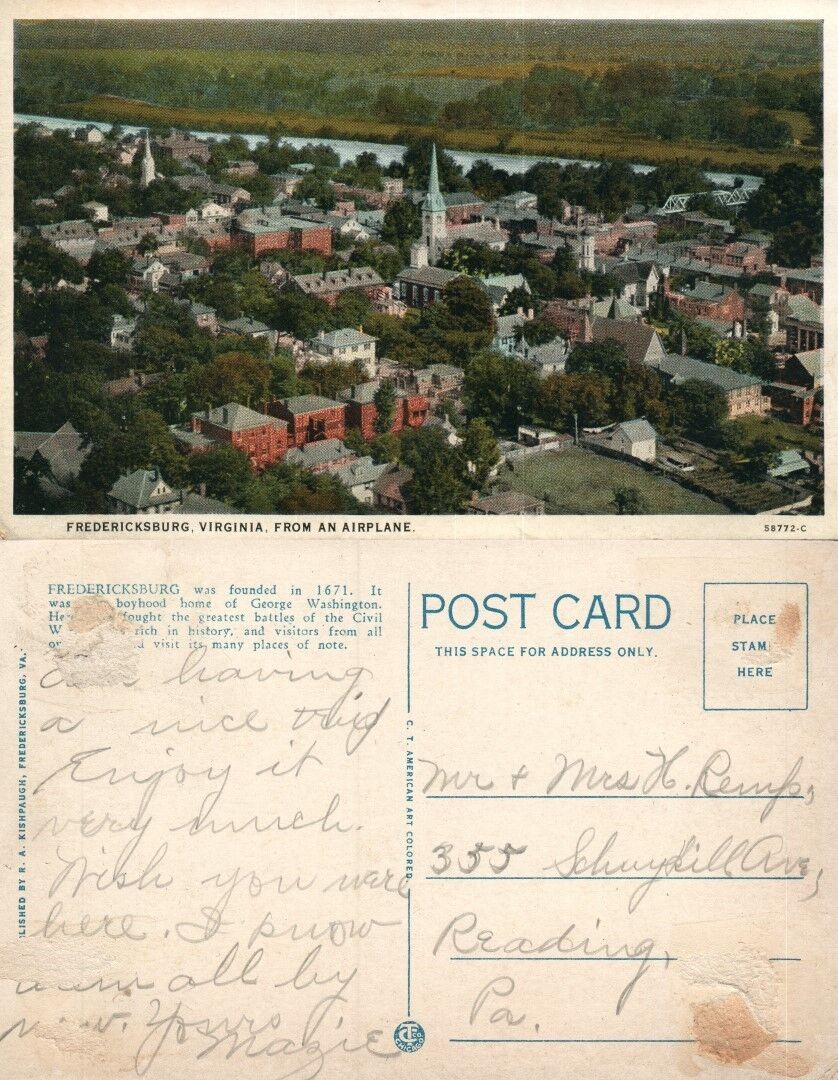 FREDERICKSBURG, VIRGINIA, FROM AN AIRPLANE.
58772-C
FREDERICKSBURG was founded in 1671. It
was boyhood home of George Washington.
fought the greatest battles of the Civil
rich in history, and visitors from all
visit its many places of note.
having
a nice trip
Enjoy it
very much.
Wish you were
here. I know
all by
Yours
Mazie
LISHED BY R. A. KISHPAUGH, FREDERICKSBURG, VA.
C. T. AMERICAN ART COLORED
CT CO. CHICAGO
POST CARD
THIS SPACE FOR ADDRESS ONLY.
PLACE
STAM
HERE
Mr + Mrs H. Remp,
355 Schuykill Ave,
Reading,
Pa.